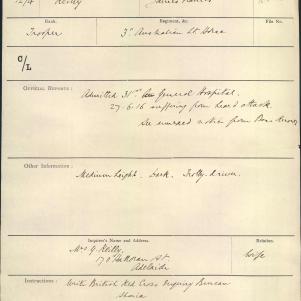 Rank. Regiment, &c. File No.
Trooper 3rd Australian Lt Horse
C/L
OFFICIAL REPORTS: Admitted 31st General Hospital.
27.6.16 suffering from heart attack.
See from Base Records
Other Information:
Medium height. Dark. Trolly-driver.
Inquirer's Name and Address. Relation.
Mrs G. Reilly, Wife
St
Adelaide
Instructions: Write British Red Cross Inquiry Bureau